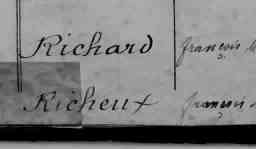 Richard françois
Richeux françois